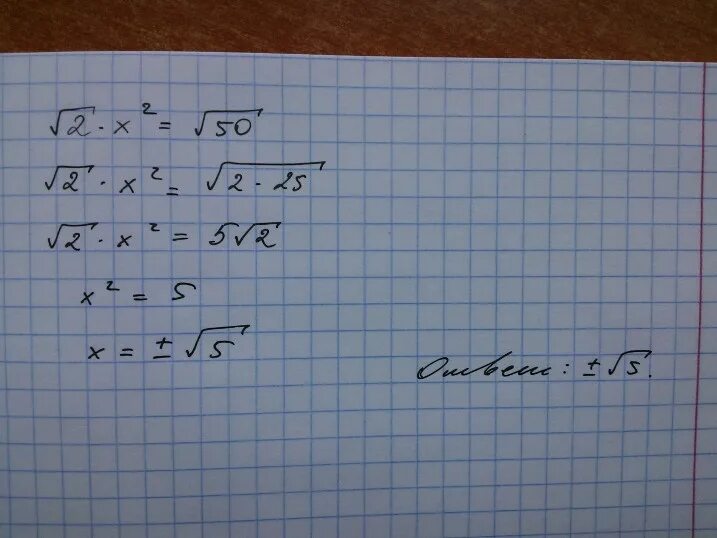 √2 · x² = √50
√2 · x² = √2 · 25
√2 · x² = 5√2
x² = 5
x = ± √5
Ответ: ± √5.